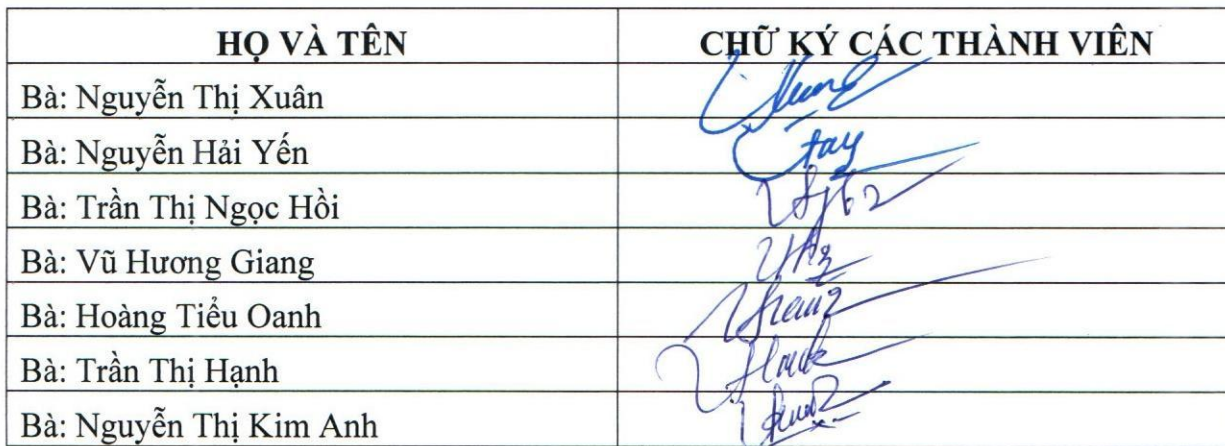 HỌ VÀ TÊN CHỮ KÝ CÁC THÀNH VIÊN
Bà: Nguyễn Thị Xuân
Bà: Nguyễn Hải Yến
Bà: Trần Thị Ngọc Hồi
Bà: Vũ Hương Giang
Bà: Hoàng Tiểu Oanh
Bà: Trần Thị Hạnh
Bà: Nguyễn Thị Kim Anh